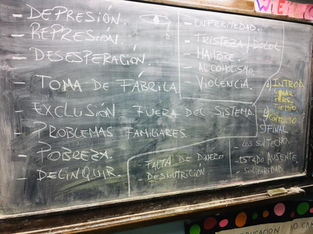 - DEPRESIÓN.
- REPRESIÓN
- DESESPERACIÓN.
- TOMA DE FÁBRICA
EXCLUSIÓN FUERA DEL SISTEMA.
- PROBLEMAS FAMILIARES
- POBREZA.
- DELINQUIR.
- ENFERMEDAD.
- TRISTEZA / DOLOR.
HAMBRE
- ALCOHOLISMO
VIOLENCIA.
- FALTA DE DINERO
- DESNUTRICIÓN
INTROD
FINAL
- ESTADO AUSENTE